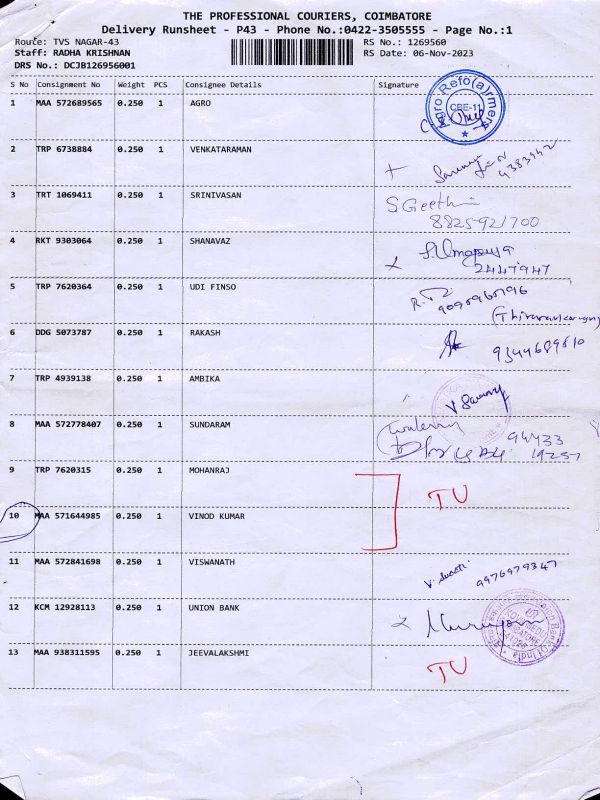 THE PROFESSIONAL COURIERS, COIMBATORE
Delivery Runsheet - P43 - Phone No.:0422-3505555 - Page No.:1
Route: TVS NAGAR-43 RS No.: 1269560
Staff: RADHA KRISHNAN RS Date: 06-Nov-2023
DRS No.: DCJB126956001
S No Consignment No Weight PCS Consignee Details Signature
1 MAA 572689565 0.250 1 AGRO
Agro Refo(a)rmers CBE-11
2 TRP 6738884 0.250 1 VENKATARAMAN
3 TRT 1069411 0.250 1 SRINIVASAN S Geetha
8825921700
4 RKT 9303064 0.250 1 SHANAVAZ
2447947
5 TRP 7620364 0.250 1 UDI FINSO
6 DDG 5073787 0.250 1 RAKASH
9344689610
7 TRP 4939138 0.250 1 AMBIKA
8 MAA 572778407 0.250 1 SUNDARAM
94433
19257
9 TRP 7620315 0.250 1 MOHANRAJ TU
10 MAA 571644985 0.250 1 VINOD KUMAR
11 MAA 572841698 0.250 1 VISWANATH
9976979347
12 KCM 12928113 0.250 1 UNION BANK
13 MAA 938311595 0.250 1 JEEVALAKSHMI TU